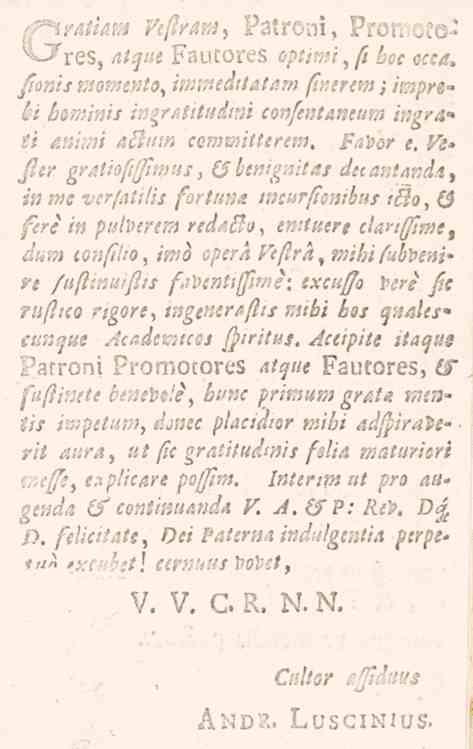 Gratiam Veſtram, Patroni, Promoto-
res, atque Fautores optimi, ſi hoc occa-
ſionis momento, immeditatam ſinerem; impro-
bi hominis ingratitudini conſentaneum ingra-
ti animi actum committerem. Favor e. Ve-
ſter gratioſiſſimus, & benignitas decantanda,
in me verſatilis fortunæ incurſionibus icto, &
ferè in pulverem redacto, enituere clariſſime,
dum conſilio, imò operâ Veſtrâ, mihi ſubveni-
re ſuſtinuiſtis faventiſſimè: excuſſo verè ſic
ruſtico rigore, ingeneraſtis mihi hos quales-
cunque Academicos ſpiritus. Accipite itaque
Patroni Promotores atque Fautores, &
ſuſtinete benevolè, hunc primum gratæ men-
tis impetum, donec placidior mihi adſpirave-
rit aura, ut ſic gratitudinis folia maturiori
meſſe, explicare poſſim. Interim ut pro au-
genda & continuanda V. A. & P: Rev. Dq́;
D. felicitate, Dei Paterna indulgentia perpe-
tuò excubet! cernuus vovet,
V. V. C. R. N. N.
Cultor aſſiduus
ANDR. LUSCINIUS.